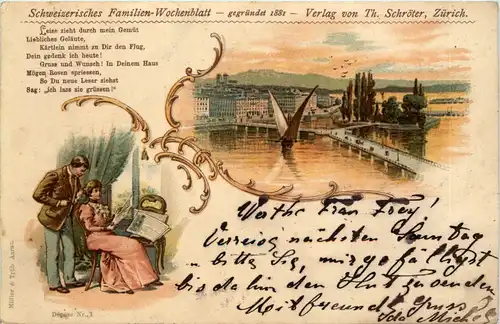 Schweizerisches Familien-Wochenblatt — gegründet 1881 — Verlag von Th. Schröter, Zürich.
Leise zieht durch mein Gemüt
Liebliches Geläute,
Kärtlein nimmt zu Dir den Flug,
Dein gedenk ich heute!
Gruss und Wunsch! In Deinem Haus
Mögen Rosen spriessen,
So Du neue Leser siehst
Sag: „ich lass sie grüssen!"
Müller & Trüb, Aarau.
Dépose Nr. 3
Werthe Frau Frey!
nächsten Samstag
bitte Sie, mir gefälligst
bis da hin den Hut zu senden
Mit freundl Gruss
Ida